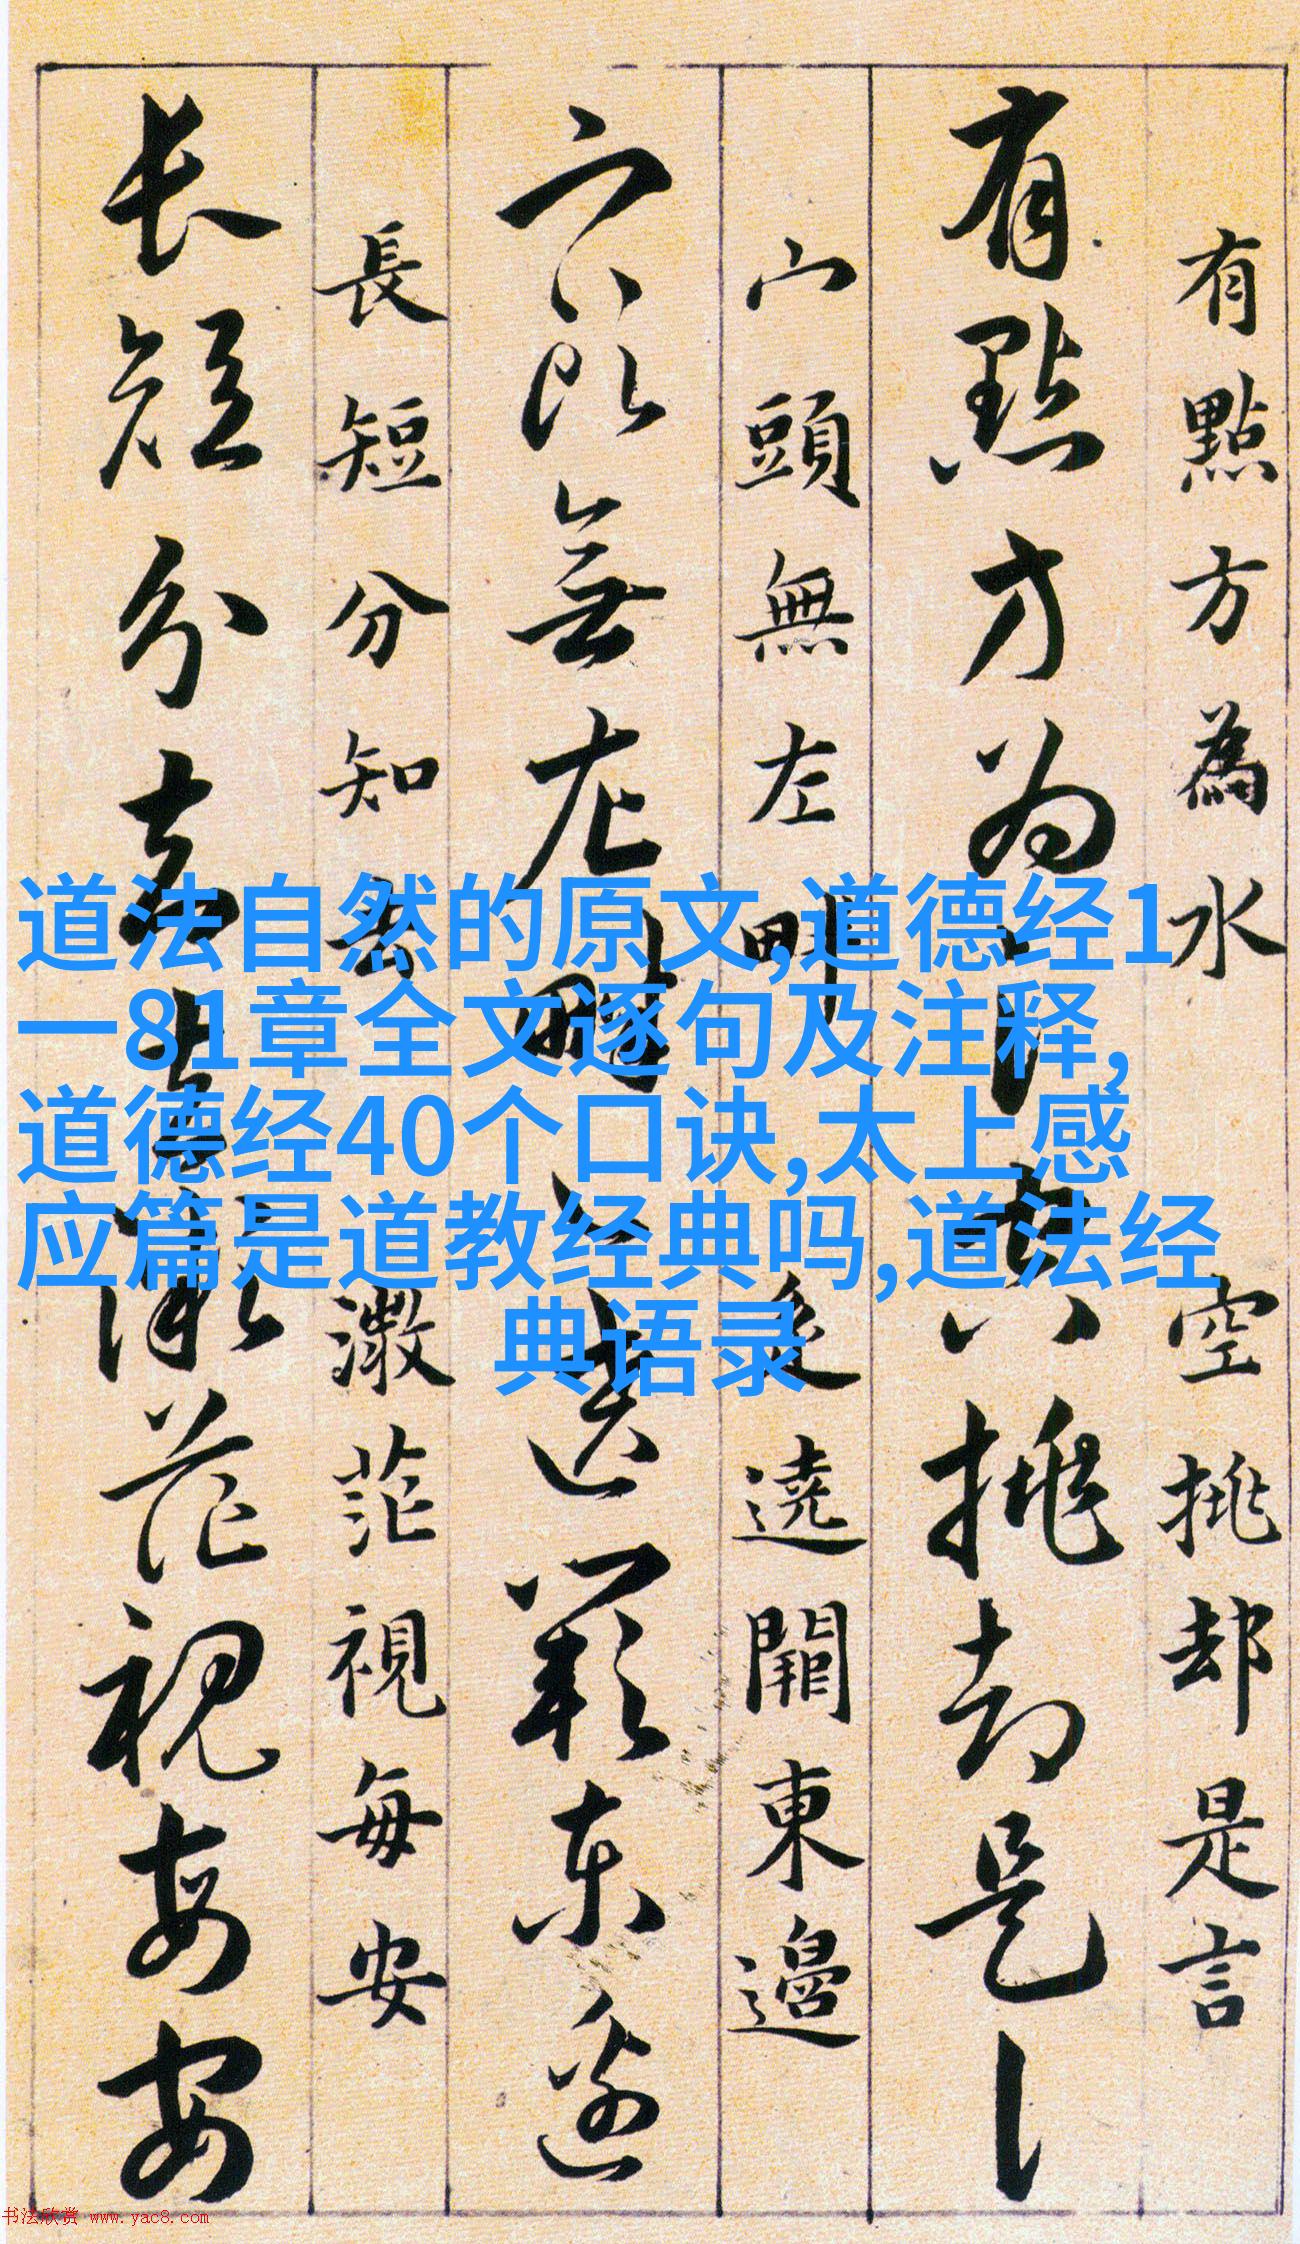 有點方為水空挑却是言
有點方為 挑却是
宀頭無左畔辵遶闕東邊
宀頭無左畔辵遶闕東邊
長短分知去微茫視每安
長短分知去微茫視每安
道法自然的原文,道德经1
一81章全文逐句及注释,
道德经40个口诀,太上感
应篇是道教经典吗,道法经
典语录
书法欣赏 www.yac8.com